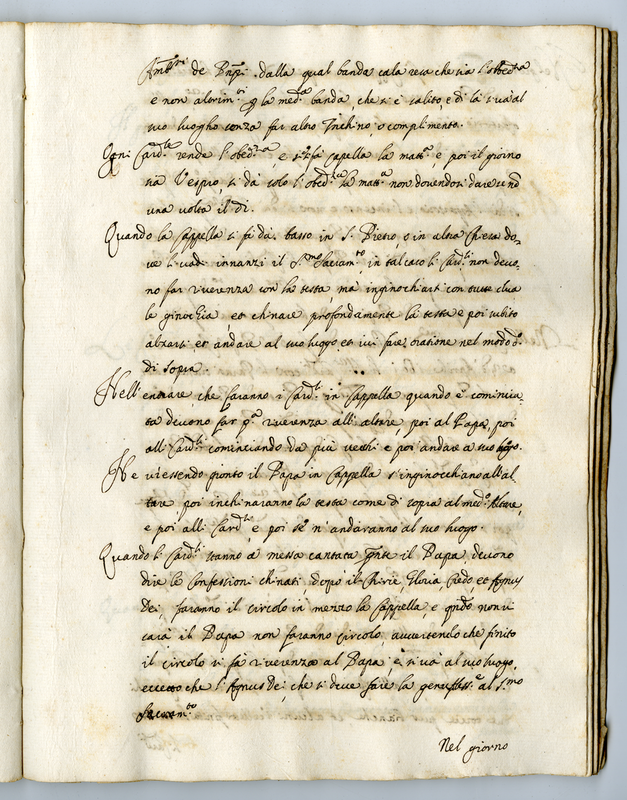 de Pnpi. dalla qual banda cala resa che sia l'obed.za
e non altrim.ti p la med.a banda, che si è salito e di là si và al
suo luogho senza far altro Inchino o complimento.
Ogni Card.le rende l'obed.za, e si fà capella la matt.a e poi il giorno
sia Vespro, si dà solo l'obed.za la matt.a non dovendosi dare se nõ
una volta il dì.
Quando la Cappella si fà da basso in S. Pietro, ò in altra Chiesa do-
ve si vadi innanzi il S.mo Sacram.to, in tal caso li Card.li non devo-
no far riverenza con la testa, mà inginochiarsi con tutte dua
le ginochia, et chinare profondamente la testa e poi subito
alzarsi, et andare al suo luogo et ivi fare oratione nel modo d.o
di sopra.
Nell' entrare, che faranno i Card.li in Cappella quando è comincia-
ta devono far p.a riverenza all' altare, poi al Papa, poi
alli Card.li cominciando da più vecchi e poi andare a suo luogo.
Ne v'essendo gionto il Papa in Cappella s'inginocchiano all'al-
tare, poi inchinaranno la testa come di sopra al med.o Altare,
e poi alli Card.li, e poi se n'andaranno al suo luogo.
Quando li Card.li stanno à messa cantata pnte il Papa devono
dire le Confessioni chinati, dopò il Chirie, Gloria, Credo, et Agnus
Dei, faranno il circolo in menzo la Cappella, e qndo non vi
sarà il Papa non faranno circolo, auuertendo che finito
il circolo si fà riverenza al Papa, e si và al suo luogo,
eccetto che l'Agnus Dei, che si deve fare la genufless.e al S.mo
Sacram.to
Nel giorno